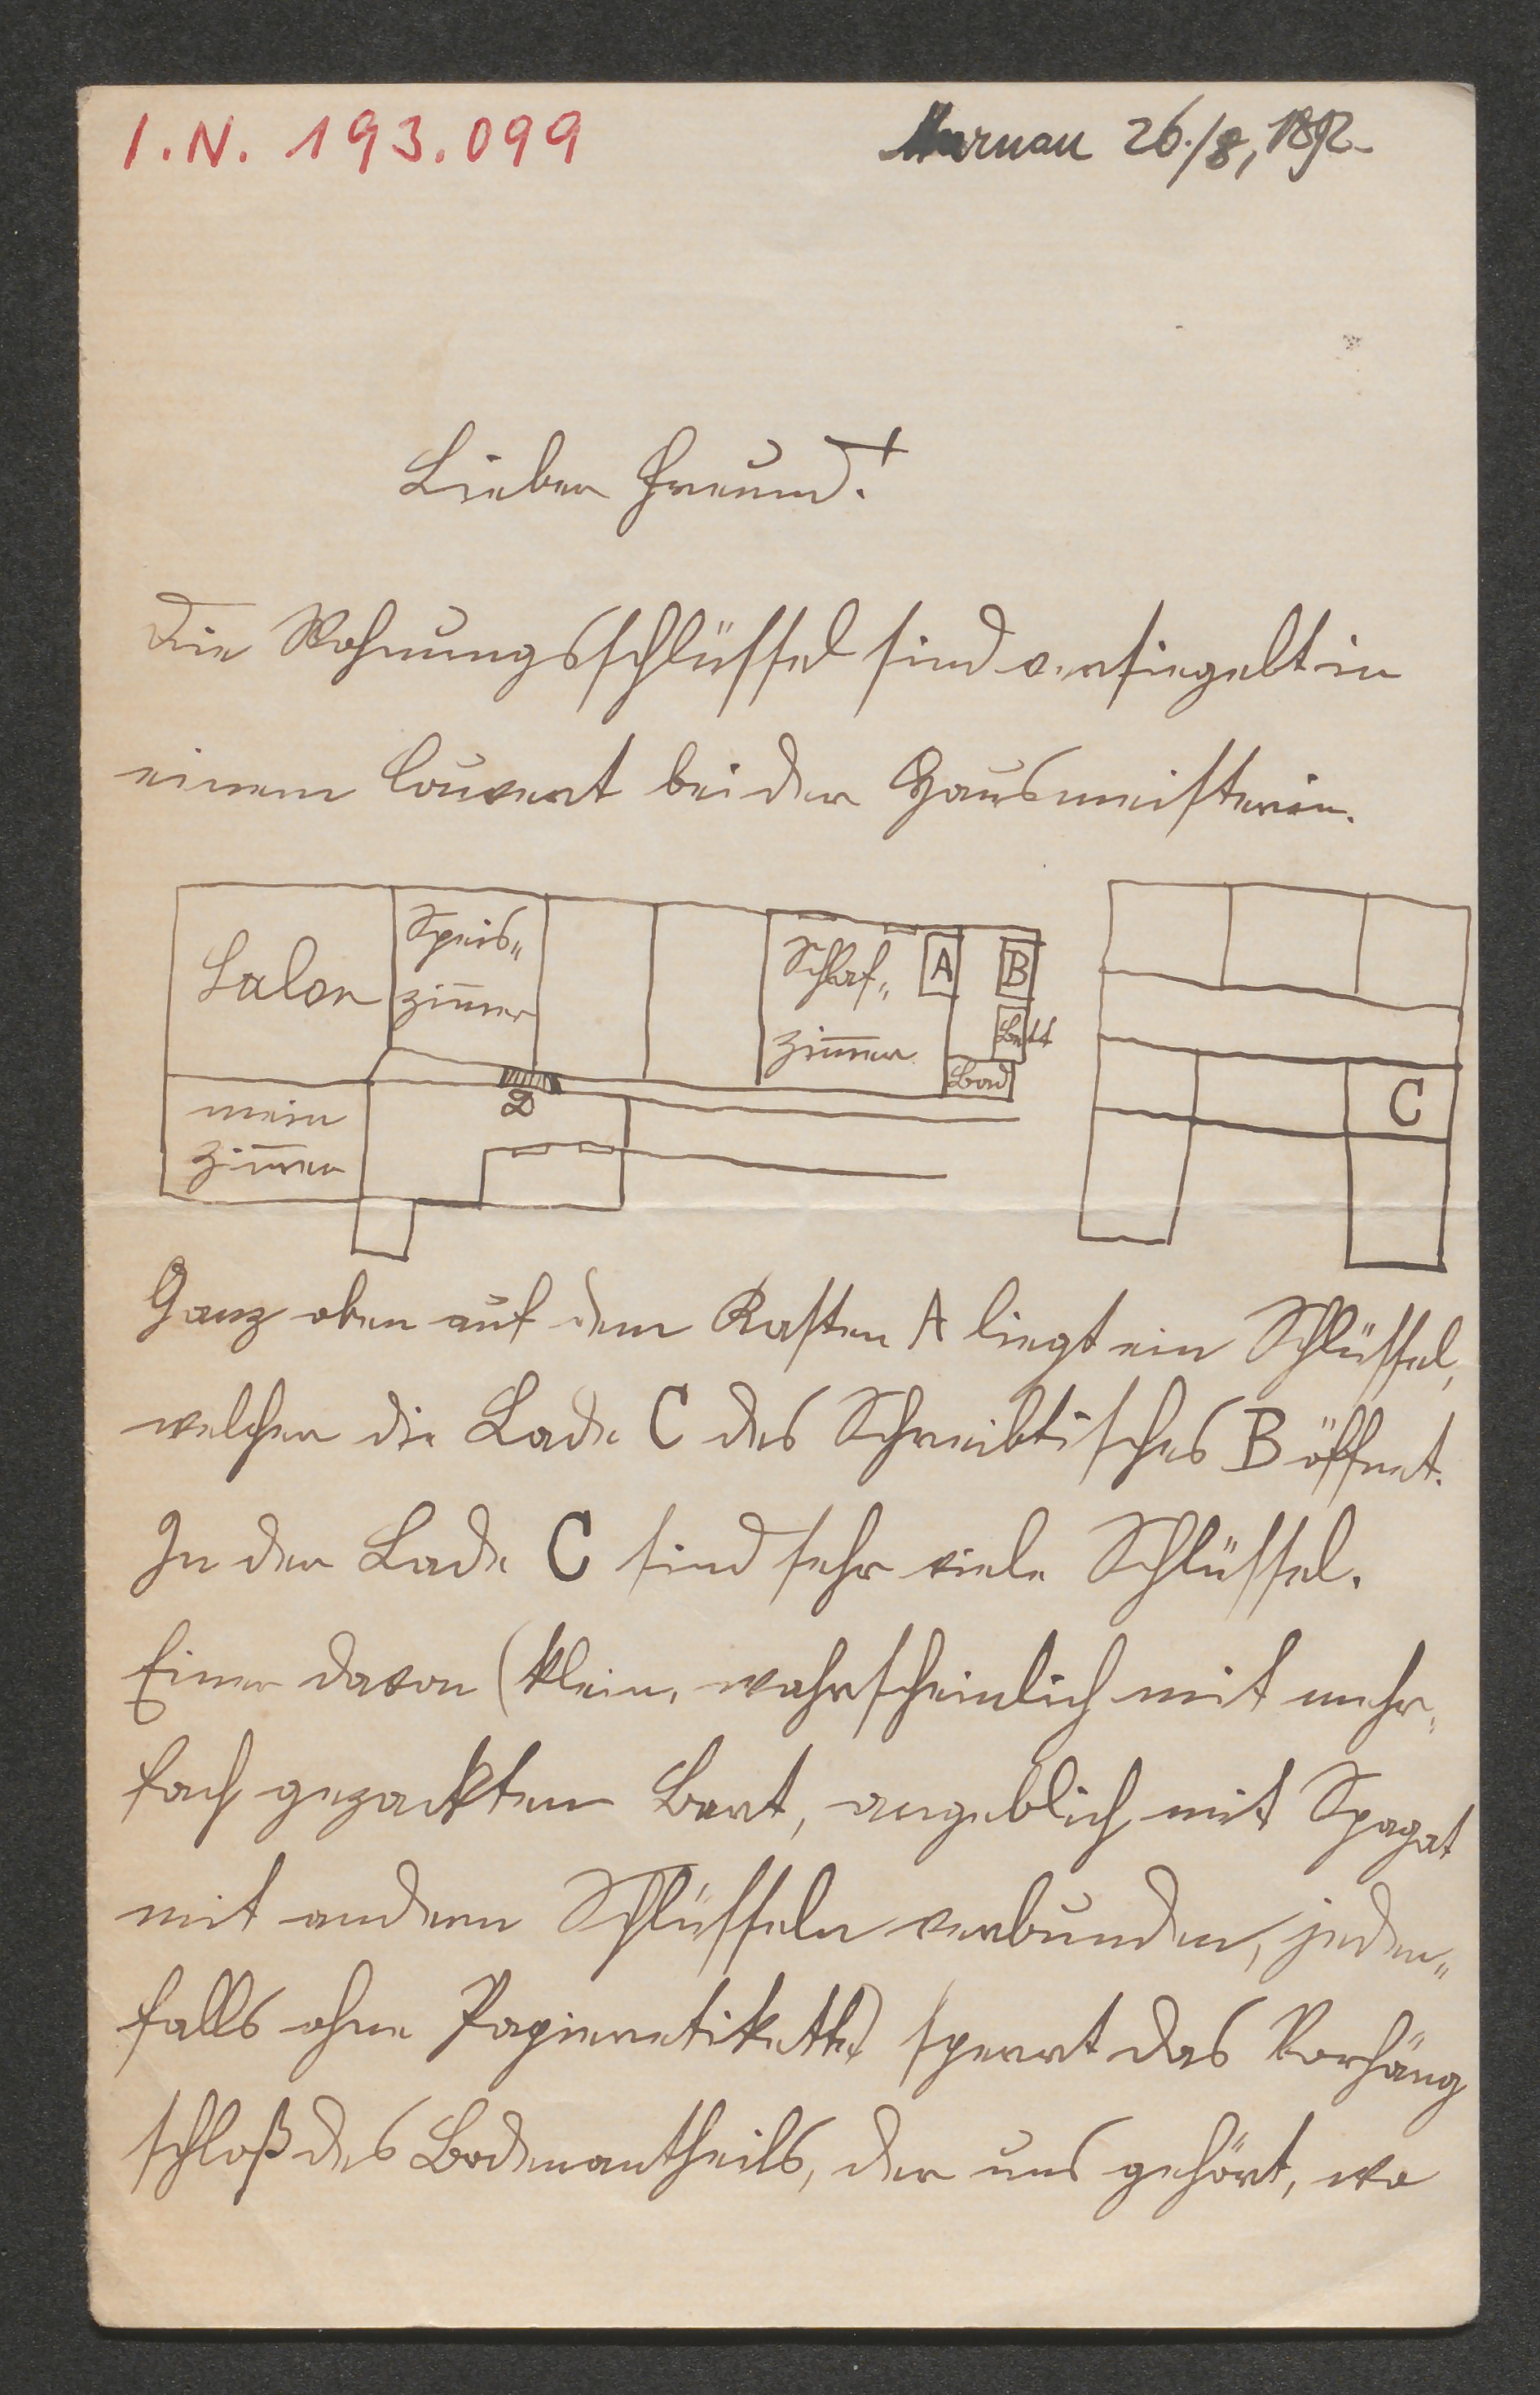 I.N. 193.099
Murnau 26./8, 1892.
Lieber Freund!
Die Wohnungsschlüssel sind versiegelt in
einem Couvert bei der Hausmeisterin.
Salon
Speis„
zim̅er
Schlaf„
zim̅er
A
B
Bett
Bad
mein
Zim̅er
D
C
Ganz oben auf dem Kasten A liegt ein Schlüssel,
welcher die Lade C des Schreibtisches B öffnet.
In der Lade C sind sehr viele Schlüssel.
Einer davon (klein, wahrscheinlich mit mehr„
fach gezacktem Bart, angeblich mit Spagat
mit andern Schlüsseln verbunden, jeden„
falls ohne Papieretikette) sperrt das Vorhäng
schloß des Bodenantheils, der uns gehört, wo